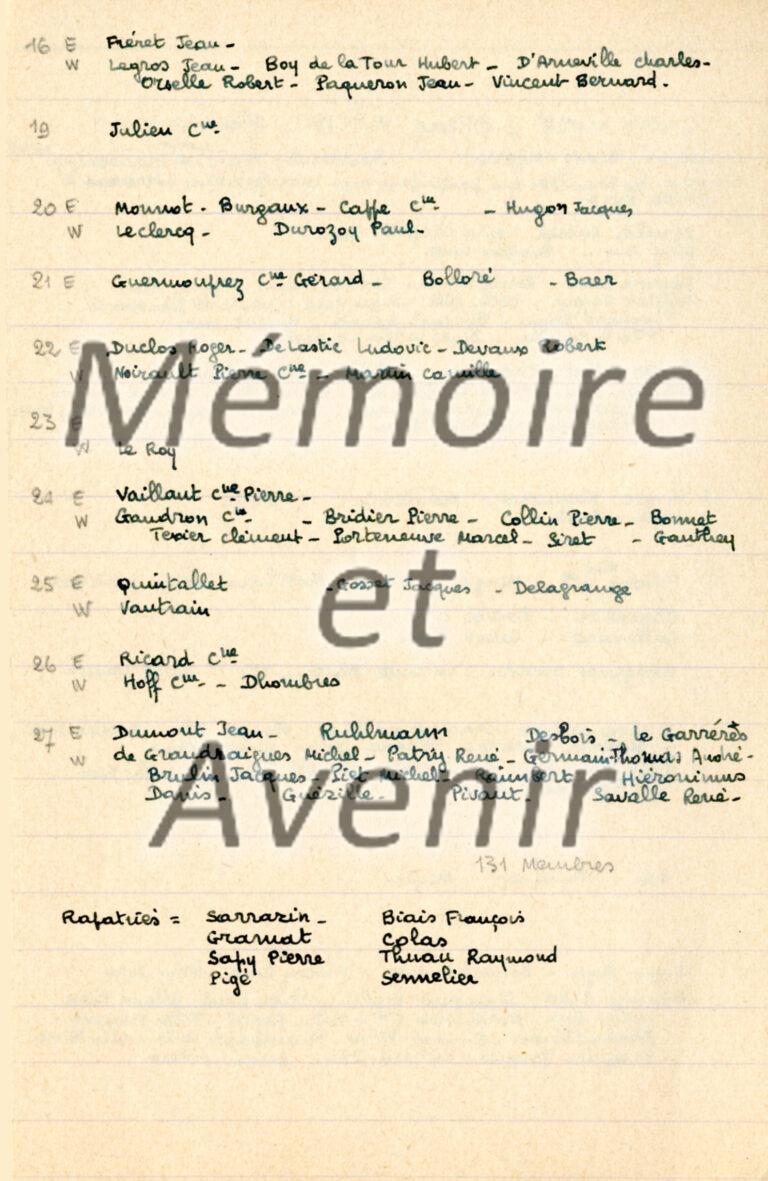 16 E Fréret Jean -
W Legros Jean - Boy de la Tour Hubert - D'Arneville charles -
Orselle Robert - Paqueron Jean - Vincent Bernard.
19 Julien Cne
20 E Monnot - Burgaux - Caffe Cne - Hugon Jacques
W Leclercq - Durozoy Paul -
21 E Guermonprez Cne Gérard - Bolloré - Baer
22 E Duclos Roger - De Lastic Ludovic - Devaux Robert
W Noirault Pierre Cne - Martin Camille
23 E
W Le Roy
24 E Vaillant Cne Pierre -
W Gaudron Cne - Bridier Pierre - Collin Pierre - Bonnet
Texier clément - Porteneuve Marcel - Siret - Gauthey
25 E Quintallet - Gosset Jacques - Delagrange
W Vautrain
26 E Ricard Cne
W Hoff Cne - Dhombres
27 E Dumont Jean - Ruhlmann Desbois - le Garrérès
W de Grandsaignes Michel - Patry René - Germain-Thomas André -
Brulin Jacques - Piet Michel - Raimbert Hiéronimus
Danis - Guézille - Pivant - Savalle René -
131 Membres
Rapatriés = Sarrazin - Biais François
Gramat Colas
Sapy Pierre Thuau Raymond
Pigé Sennelier
Mémoire
et
Avenir